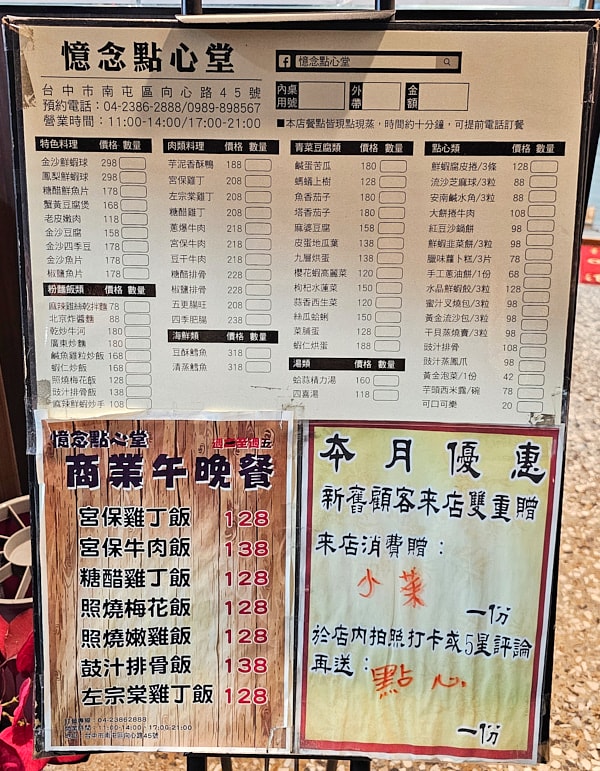 憶念點心堂
憶念點心堂
台中市南屯區向心路45號
預約電話：04-2386-2888/0989-898567
營業時間：11:00-14:00/17:00-21:00
內用 桌號
外帶
金額
■本店餐點皆現點現蒸，時間約十分鐘，可提前電話訂餐
特色料理 價格 數量
金沙鮮蝦球 298
鳳梨鮮蝦球 298
糖醋鮮魚片 178
蟹黃豆腐煲 168
老皮嫩肉 118
金沙豆腐 158
金沙四季豆 158
金沙魚片 178
椒鹽魚片 178
粉麵飯類 價格 數量
麻辣雞絲乾拌麵 78
北京炸醬麵 88
乾炒牛河 180
廣東炒麵 180
鹹魚雞粒炒飯 168
蝦仁炒飯 168
照燒梅花飯 128
豉汁排骨飯 138
麻辣鮮蝦炒手 108
肉類料理 價格 數量
芋泥香酥鴨 188
宮保雞丁 208
左宗棠雞丁 208
糖醋雞丁 208
蔥爆牛肉 218
宮保牛肉 218
豆干牛肉 218
糖醋排骨 228
椒鹽排骨 228
五更腸旺 208
四季肥腸 238
海鮮類 價格 數量
豆酥鱈魚 318
清蒸鱈魚 318
青菜豆腐類 價格 數量
鹹蛋苦瓜 180
螞蟻上樹 128
魚香茄子 180
塔香茄子 180
麻婆豆腐 158
皮蛋地瓜葉 138
九層烘蛋 138
櫻花蝦高麗菜 120
枸杞水蓮菜 150
蒜香西生菜 120
絲瓜蛤蜊 150
菜脯蛋 128
蝦仁烘蛋 188
湯類 價格 數量
蛤蒜精力湯 160
四喜湯 118
點心類 價格 數量
鮮蝦腐皮捲/3條 128
流沙芝麻球/3粒 88
安南鹹水角/3粒 88
大餅捲牛肉 108
紅豆沙鍋餅 108
鮮蝦韭菜餅/3粒 98
臘味蘿蔔糕/3片 78
手工蔥油餅/1份 68
水晶鮮蝦餃/3粒 98
蜜汁叉燒包/3粒 98
黃金流沙包/3粒 98
干貝蒸燒賣/3粒 98
豉汁排骨 98
豉汁蒸鳳爪 98
黃金泡菜/1份 42
芋頭西米露/碗 78
可口可樂 20
憶念點心堂
週一至週五
商業午晚餐
宮保雞丁飯 128
宮保牛肉飯 138
糖醋雞丁飯 128
照燒梅花飯 128
照燒嫩雞飯 128
鼓汁排骨飯 138
左宗棠雞丁飯 128
訂餐專線：04-23862888
營業時間：11:00-14:00、17:00-21:00
地址：台中市南屯區向心路45號
本月優惠
新舊顧客来店雙重贈
来店消費贈：
小菜
一份
於店內拍照打卡或5星評論
再送：點心
一份